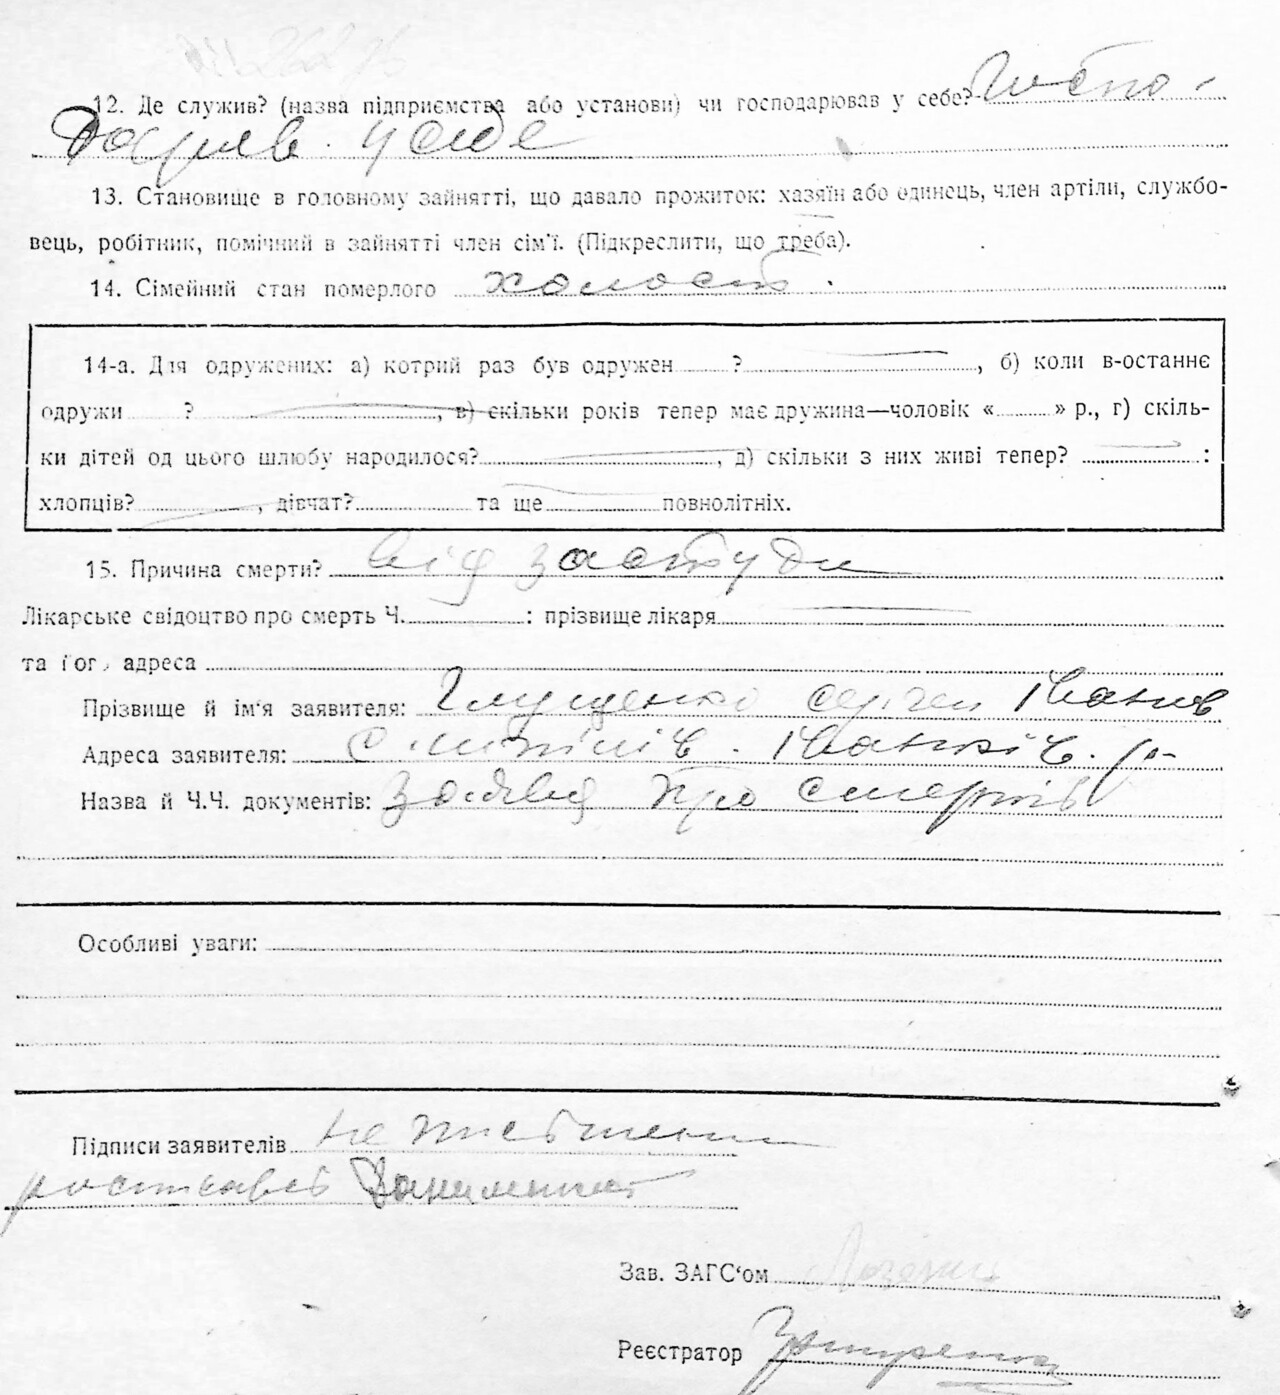 12. Де служив? (назва підприємства або установи) чи господарював у себе? Госпо-
дарив у себе
13. Становище в головному зайнятті, що давало прожиток: хазяїн або одинець, член артіли, службо-
вець, робітник, помічний в зайнятті член сім'ї. (Підкреслити, що треба).
14. Сімейний стан померлого холост.
14-а. Для одружених: а) котрий раз був одружен ? , б) коли в-останнє
одружи ? , в) скільки років тепер має дружина—чоловік « » р., г) скіль-
ки дітей од цього шлюбу народилося? , д) скільки з них живі тепер? :
хлопців? , дівчат? та ще повнолітніх.
15. Причина смерти? від застуди
Лікарське свідоцтво про смерть Ч. : прізвище лікаря
та його адреса
Прізвище й ім'я заявителя: Глущенко Сергей Іванов
Адреса заявителя: Іванків. р-
Назва й Ч.Ч. документів: Заява про смерть
Особливі уваги:
Підписи заявителів
Зав. ЗАГС'ом
Реєстратор